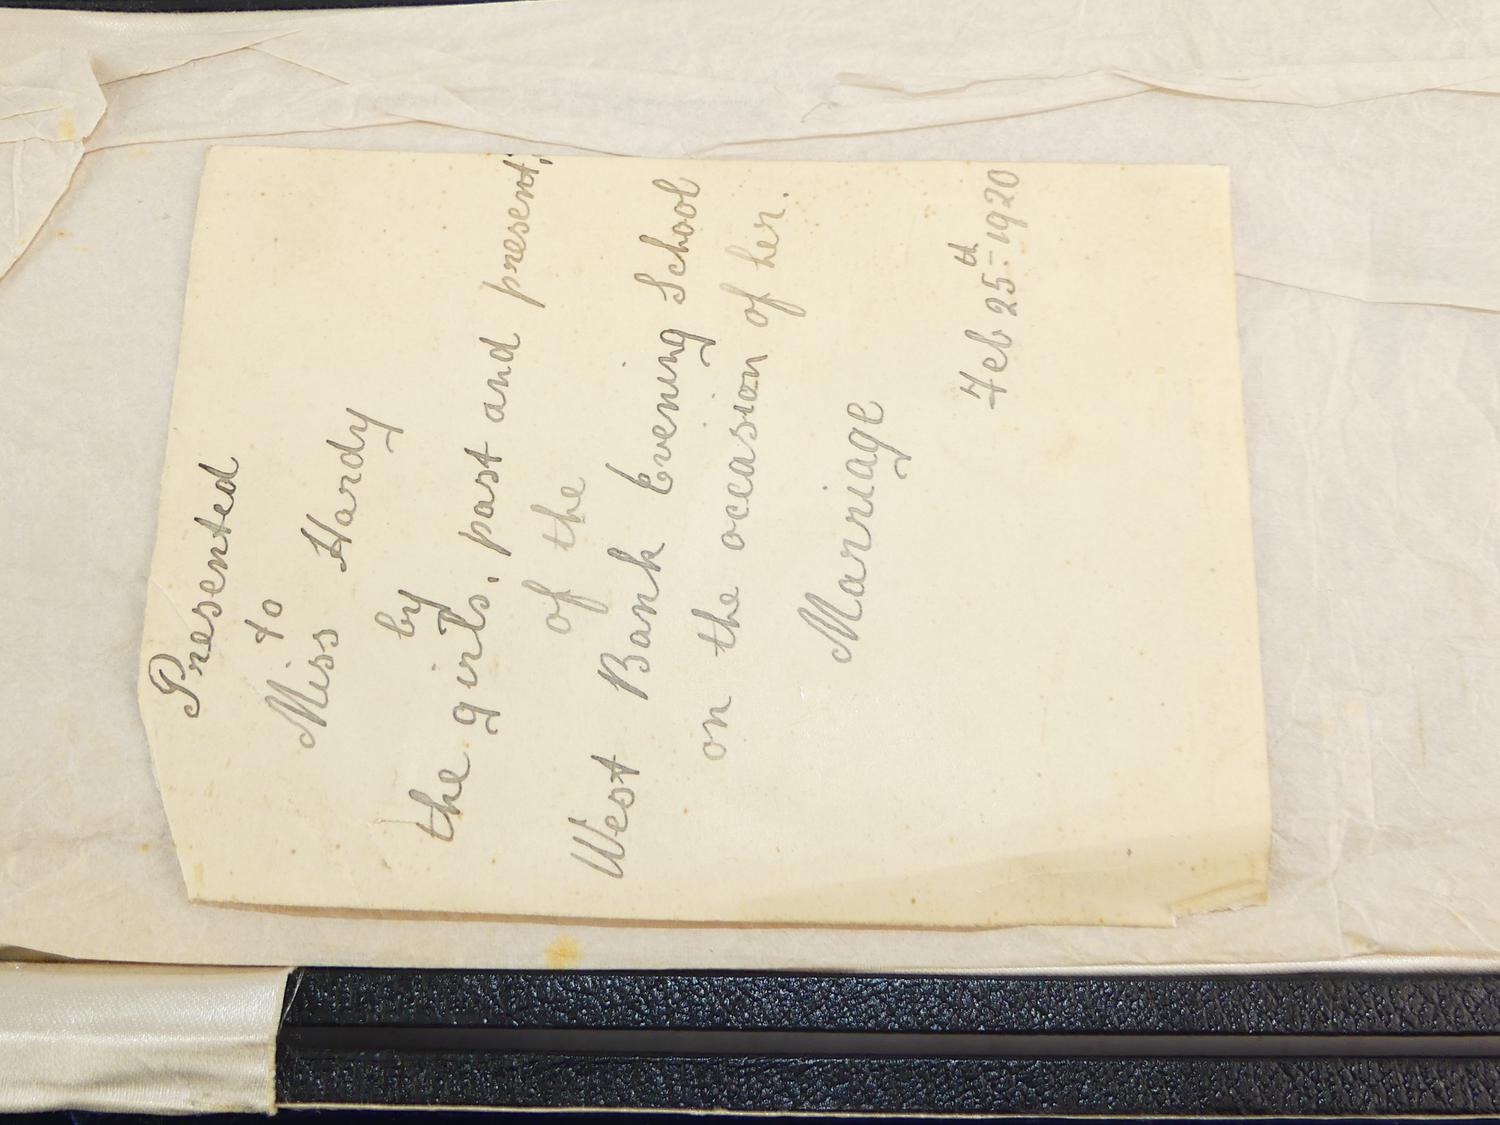 Presented
to
Miss Hardy
by
the girls, past and present,
of the
West Bank Evening School
on the occasion of her.
Marriage
Feb 25th 1920